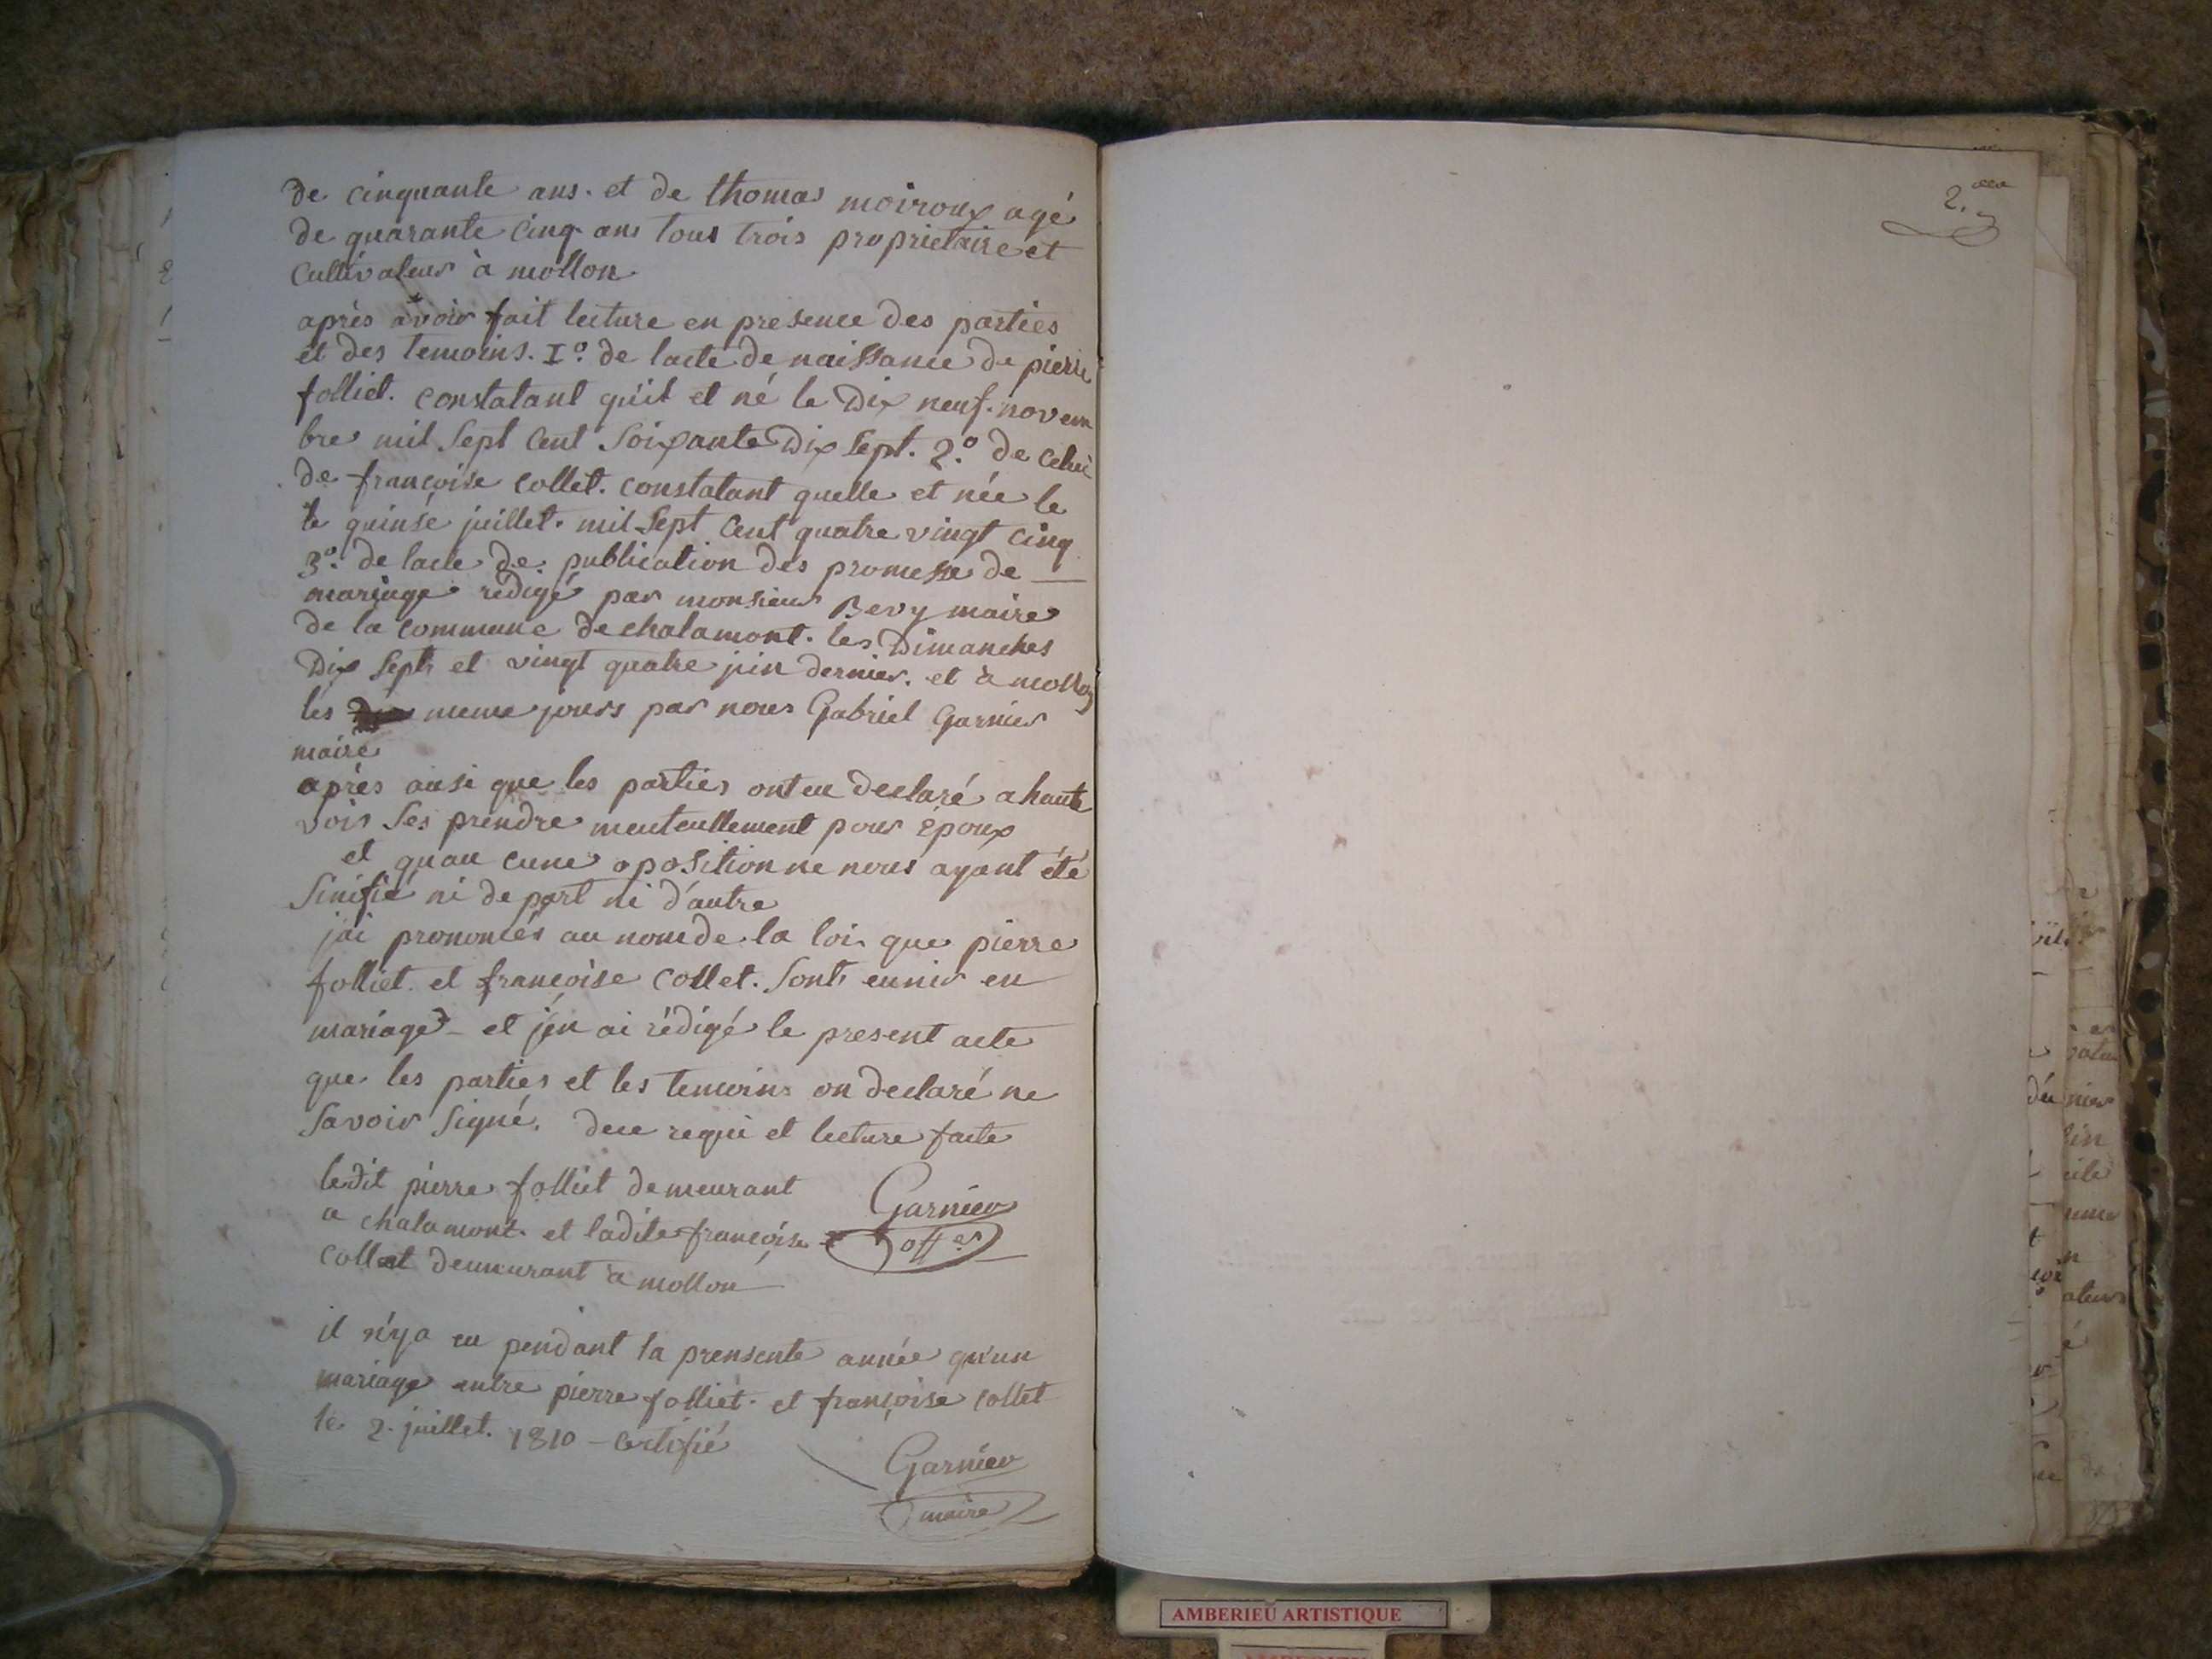 de cinquante ans. et de thomas moiroux agé
de quarante cinq ans tous trois proprietaire et
cultivateur à mollon
après avoir fait lecture en presence des parties
et des temoins. 1º. de lacte de naissance de pierre
folliet. constatant qu'il et né le dix neuf. novem
bre mil sept cent soixante dix sept. 2.º de celui
de françoise collet. constatant quelle et née le
le quinse juillet. mil sept cent quatre vingt cinq
3º. de lacte de publication des promesse de
mariage redigé par monsieur Bevy maire
de la commune de chalamont. les dimanches
dix sept et vingt quatre juin dernier. et à mollon
les meme jours par nous Gabriel Garnier
maire
après ausi que les parties ont eu declaré a haute
vois ses prendre meuteullement pour époux
et quau cune oposition ne nous ayant été
sinifié ni de part ni d'autre
jai prononcés au nom de la loi que pierre
folliet et françoise collet. sont eunir en
mariage - et j'en ai rédigé le present acte
que les parties et les temoins on declaré ne
savoir signé. dece requi et lecture faite
ledit pierre folliet demeurant
a chalamont. et ladite françoise
collet demeurant à mollon
Garnier
offer
il n'y a eu pendant la prensente année qu'un
mariage entre pierre folliet. et françoise collet
le 2. juillet. 1810 - certifié
Garnier
maire
2.
AMBERIEU ARTISTIQUE